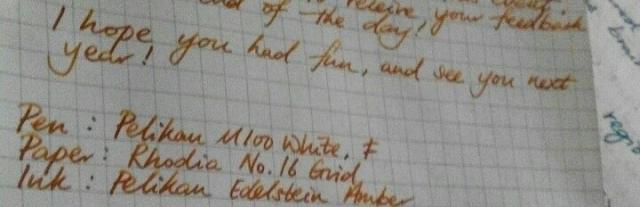 end of the day! receive your feedback
I hope you had fun, and see you next
year!
Pen : Pelikan M100 White, F
Paper : Rhodia No. 16 Grid
Ink : Pelikan Edelstein Amber